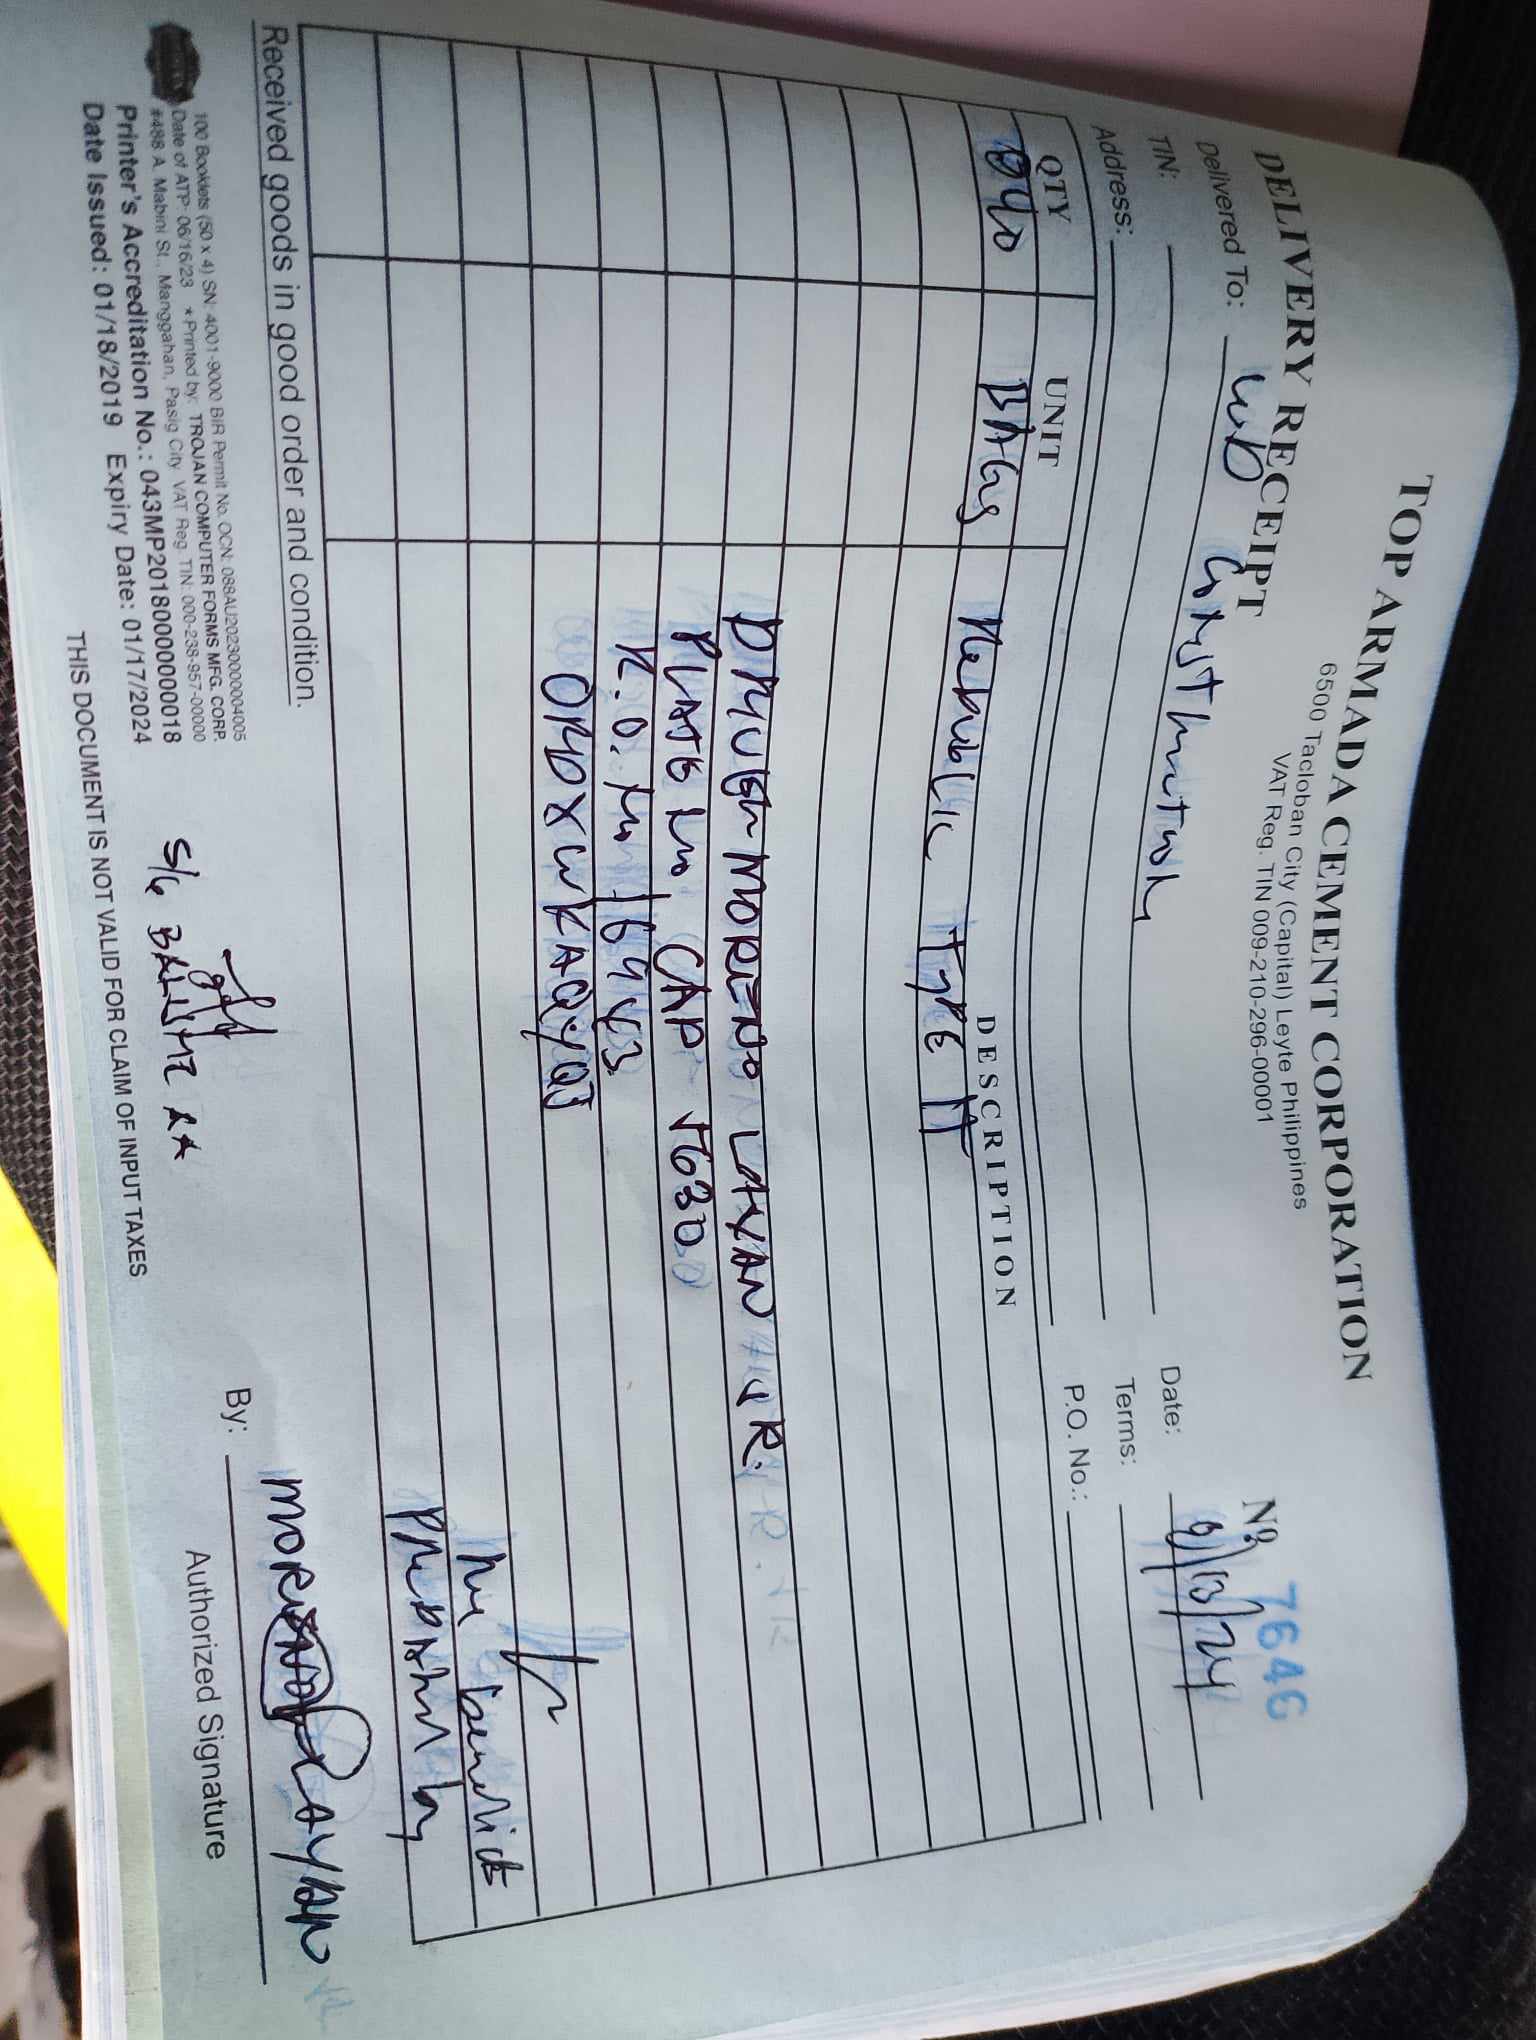 TOP ARMADA CEMENT CORPORATION
6500 Tacloban City (Capital) Leyte Philippines
VAT Reg. TIN 009-210-296-00001
DELIVERY RECEIPT
Nº 7646
Delivered To: WD Construction
Date: 9/13/24
TIN:
Terms:
Address:
P.O. No.:
QTY UNIT DESCRIPTION
840 BAGS Republic TYPE 1T
DRIVER MORENO LAYAN JR.
PLATE No CAP 5630
R.O. No 16983
Received goods in good order and condition.
100 Booklets (50 x 4) SN: 4001-9000 BIR Permit No. OCN: 088AU20230000004005
Date of ATP: 06/16/23 * Printed by: TROJAN COMPUTER FORMS MFG. CORP.
#488 A. Mabini St., Manggahan, Pasig City VAT Reg. TIN: 000-238-957-00000
Printer's Accreditation No.: 043MP20180000000018
Date Issued: 01/18/2019 Expiry Date: 01/17/2024
S/G
By: MORENO LAYAN
Authorized Signature
THIS DOCUMENT IS NOT VALID FOR CLAIM OF INPUT TAXES